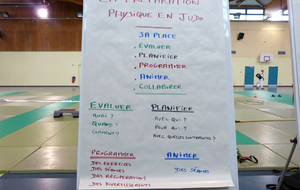 LA PRÉPARATION
PHYSIQUE EN JUDO
SA PLACE
. EVALUER
. PLANIFIER
. PROGRAMMER
. ANIMER
. COLLABORER
EVALUER
PLANIFIER
QUOI ?
QUAND ?
COMMENT ?
AVEC QUI ?
POUR QUI ?
AVEC QUELLES COMPOSANTES ?
PROGRAMMER
ANIMER
DES EXERCICES
DES SÉANCES
DES RÉCUPÉRATIONS
DES DIVERTISSEMENTS
DES SÉANCES